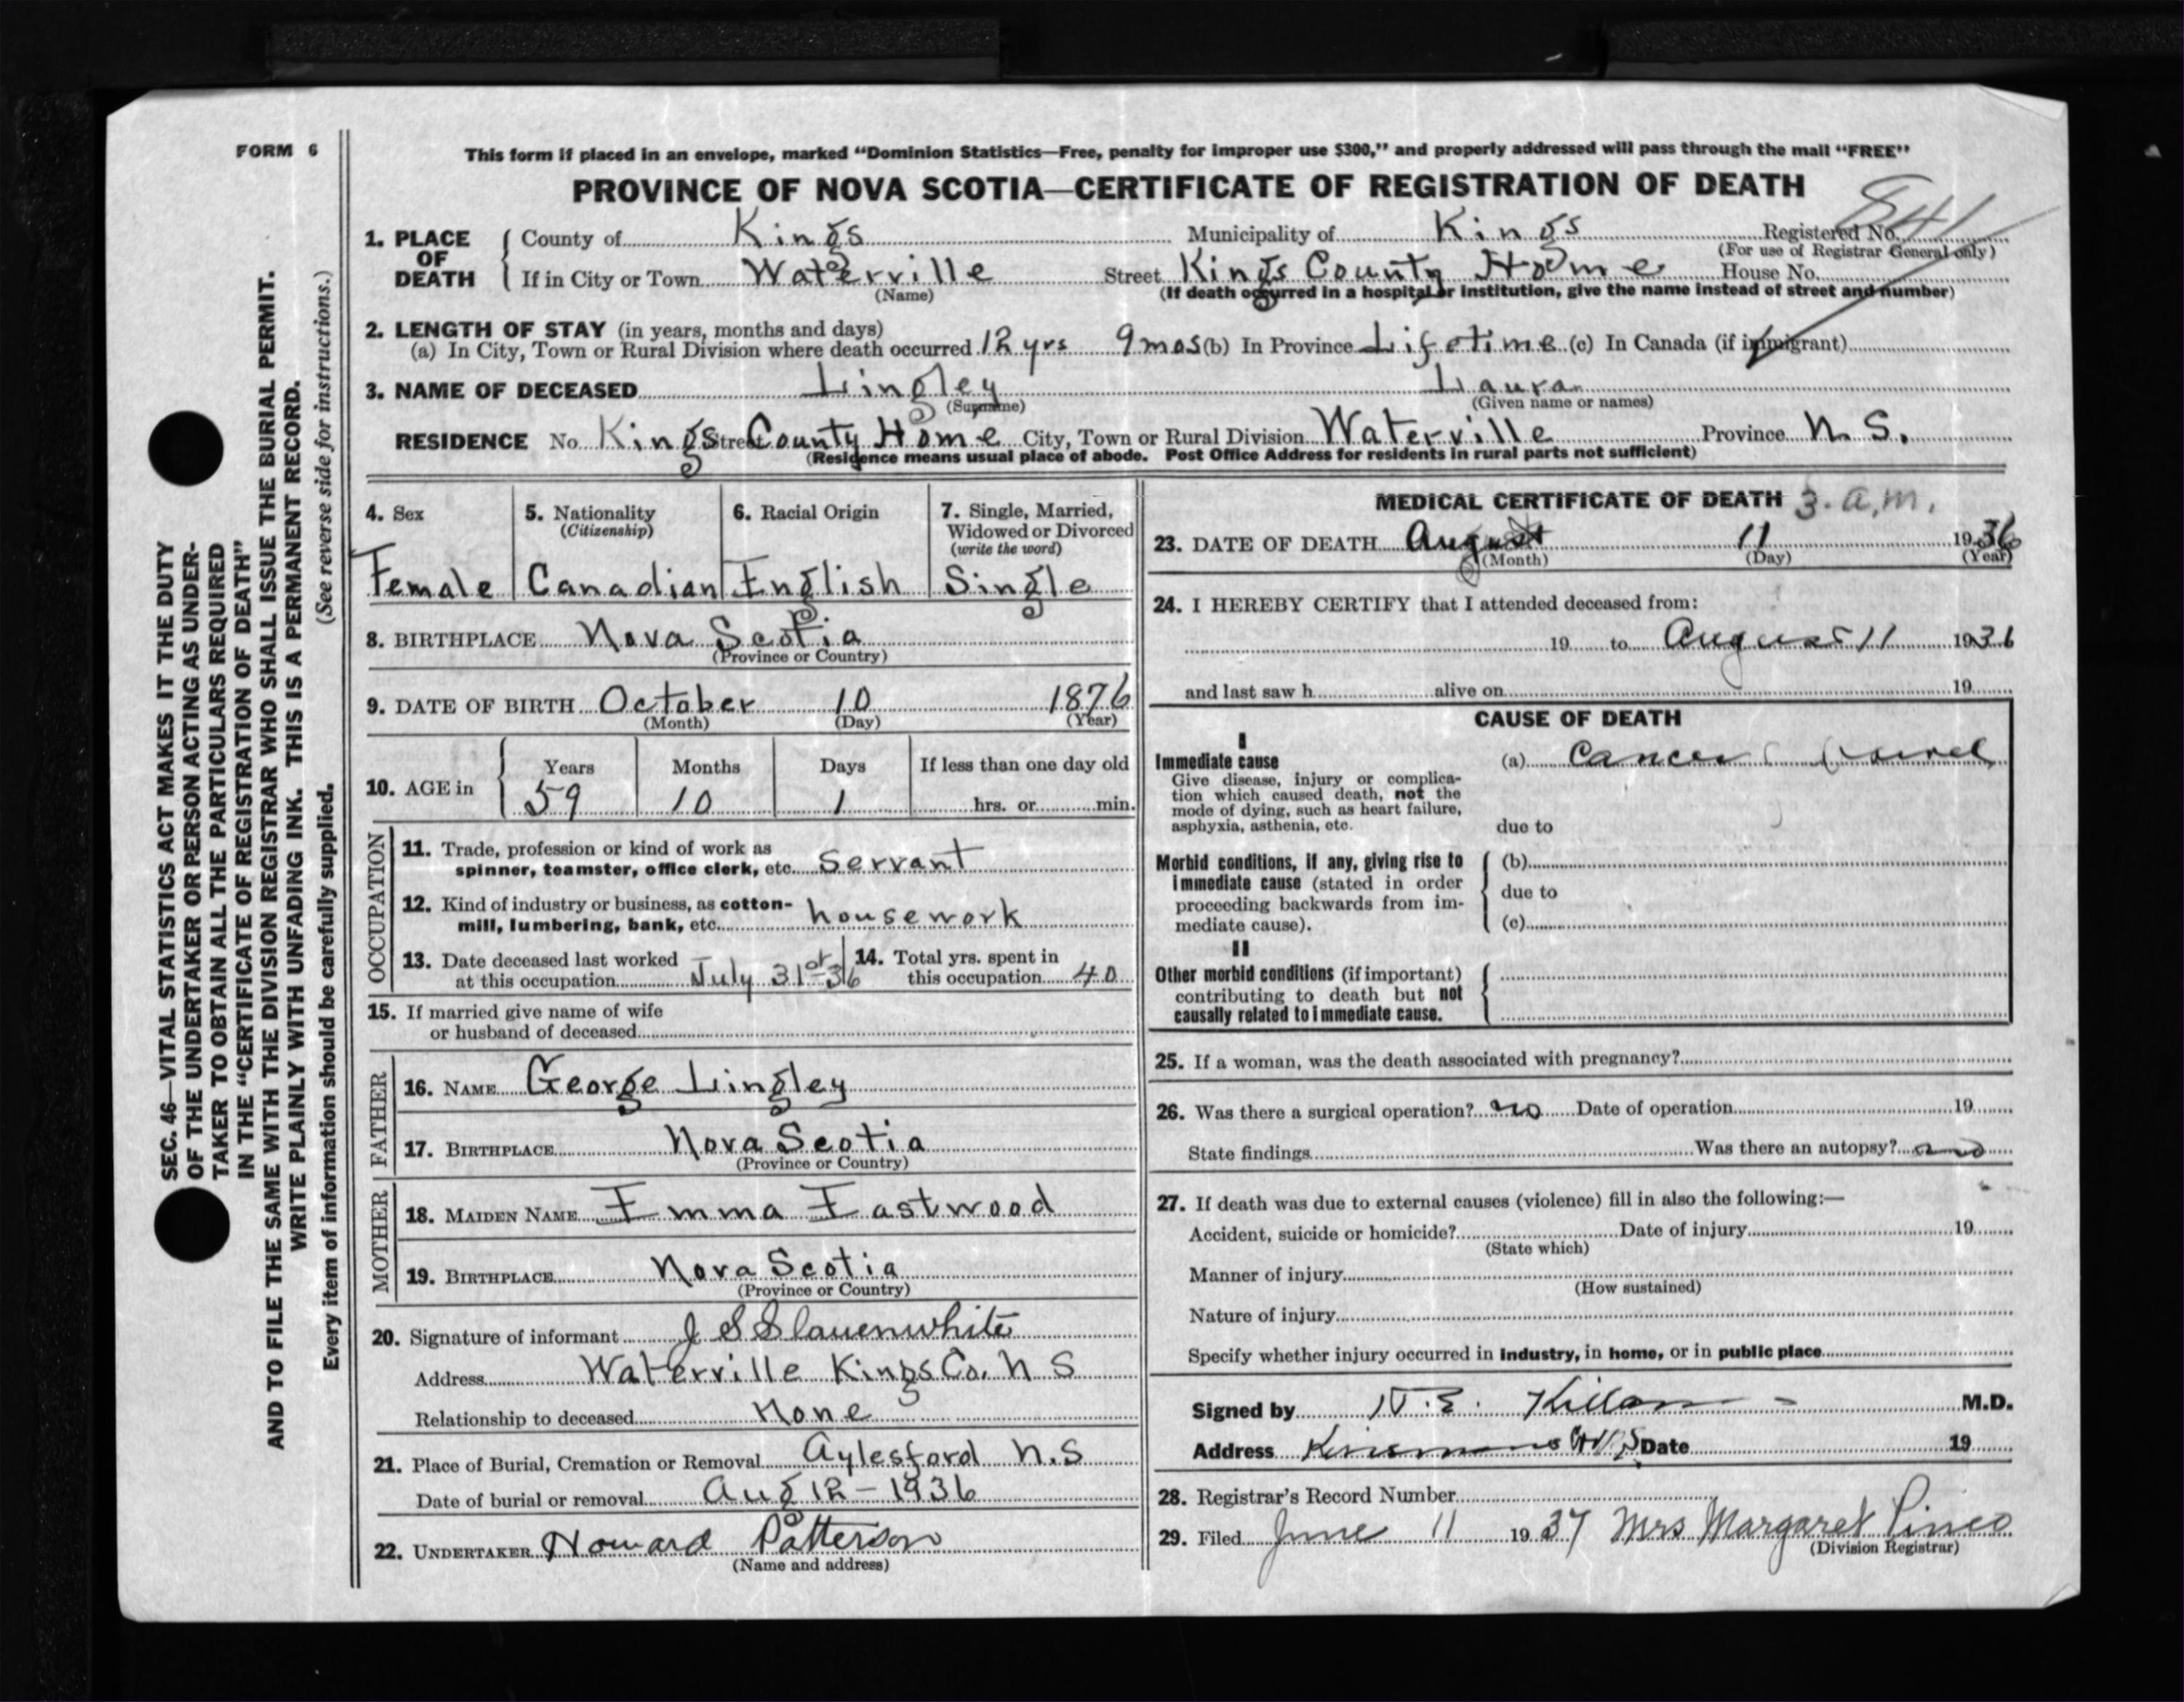 FORM 6
This form if placed in an envelope, marked “Dominion Statistics—Free, penalty for improper use $300,” and properly addressed will pass through the mail “FREE”
PROVINCE OF NOVA SCOTIA—CERTIFICATE OF REGISTRATION OF DEATH
841
1. PLACE OF DEATH
County of Kings Municipality of Kings Registered No.
(For use of Registrar General only)
If in City or Town Waterville Street Kings County Home House No.
(Name) (If death occurred in a hospital or institution, give the name instead of street and number)
2. LENGTH OF STAY (in years, months and days)
(a) In City, Town or Rural Division where death occurred 12 yrs 9 mos (b) In Province Lifetime (c) In Canada (if immigrant)
3. NAME OF DECEASED Lingley Laura
(Surname) (Given name or names)
RESIDENCE No. Kings Street County Home City, Town or Rural Division Waterville Province N. S.
(Residence means usual place of abode. Post Office Address for residents in rural parts not sufficient)
4. Sex 5. Nationality 6. Racial Origin 7. Single, Married,
(Citizenship) Widowed or Divorced
(write the word)
Female Canadian English Single
8. BIRTHPLACE Nova Scotia
(Province or Country)
9. DATE OF BIRTH October 10 1876
(Month) (Day) (Year)
10. AGE in Years Months Days If less than one day old
59 10 1 hrs. or min.
OCCUPATION
11. Trade, profession or kind of work as
spinner, teamster, office clerk, etc. servant
12. Kind of industry or business, as cotton-
mill, lumbering, bank, etc. housework
13. Date deceased last worked 14. Total yrs. spent in
at this occupation July 31st 36 this occupation 40
15. If married give name of wife
or husband of deceased
FATHER
16. NAME George Lingley
17. BIRTHPLACE Nova Scotia
(Province or Country)
MOTHER
18. MAIDEN NAME Emma Eastwood
19. BIRTHPLACE Nova Scotia
(Province or Country)
20. Signature of informant J S Slauenwhite
Address Waterville Kings Co. N S
Relationship to deceased None
21. Place of Burial, Cremation or Removal Aylesford N.S
Date of burial or removal Aug 12 – 1936
22. UNDERTAKER Howard Patterson
(Name and address)
MEDICAL CERTIFICATE OF DEATH 3. a.m.
23. DATE OF DEATH August 11 1936
(Month) (Day) (Year)
24. I HEREBY CERTIFY that I attended deceased from:
19 to August 11 1936
and last saw h alive on 19
CAUSE OF DEATH
I
Immediate cause (a) Cancer
Give disease, injury or complica-
tion which caused death, not the
mode of dying, such as heart failure,
asphyxia, asthenia, etc. due to
Morbid conditions, if any, giving rise to (b)
immediate cause (stated in order due to
proceeding backwards from im-
mediate cause). (c)
II
Other morbid conditions (if important)
contributing to death but not
causally related to immediate cause.
25. If a woman, was the death associated with pregnancy?
26. Was there a surgical operation? no Date of operation 19
State findings Was there an autopsy? no
27. If death was due to external causes (violence) fill in also the following:—
Accident, suicide or homicide? Date of injury 19
(State which)
Manner of injury
(How sustained)
Nature of injury
Specify whether injury occurred in industry, in home, or in public place
Signed by Killam M.D.
Address N.S. Date 19
28. Registrar's Record Number
29. Filed June 11 1937 Mrs Margaret Pineo
(Division Registrar)
SEC. 46—VITAL STATISTICS ACT MAKES IT THE DUTY
OF THE UNDERTAKER OR PERSON ACTING AS UNDER-
TAKER TO OBTAIN ALL THE PARTICULARS REQUIRED
IN THE “CERTIFICATE OF REGISTRATION OF DEATH”
AND TO FILE THE SAME WITH THE DIVISION REGISTRAR WHO SHALL ISSUE THE BURIAL PERMIT.
WRITE PLAINLY WITH UNFADING INK. THIS IS A PERMANENT RECORD.
Every item of information should be carefully supplied. (See reverse side for instructions.)